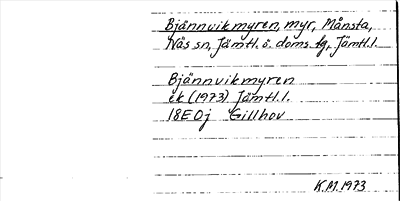 Bjännvikmyren, myr, Månsta,
Näs sn, Jämtl. ö. doms. tg, Jämtl. l.
Bjännvikmyren
ek (1973) Jämtl. l.
18E 0j Gillhov
K.M. 1973